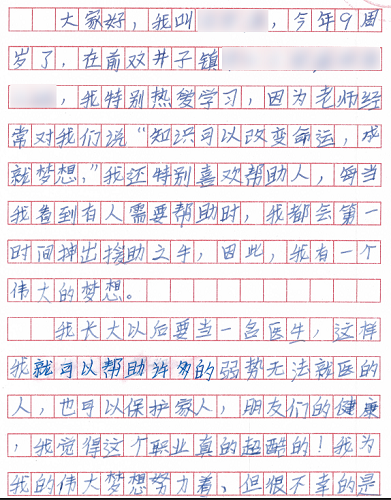 大家好，我叫，今年9周
岁了，在前双井子镇
，我特别热爱学习，因为老师经
常对我们说“知识可以改变命运，成
就梦想，”我还特别喜欢帮助人，每当
我看到有人需要帮助时，我都会第一
时间抻出援助之牛，因此，我有一个
伟大的梦想。
我长大以后要当一名医生，这样
我就可以帮助许多的弱势无法就医的
人，也可以保护家人，朋友们的健康
，我觉得这个职业真的超酷的！我为
我的伟大梦想努力着，但很不幸的是